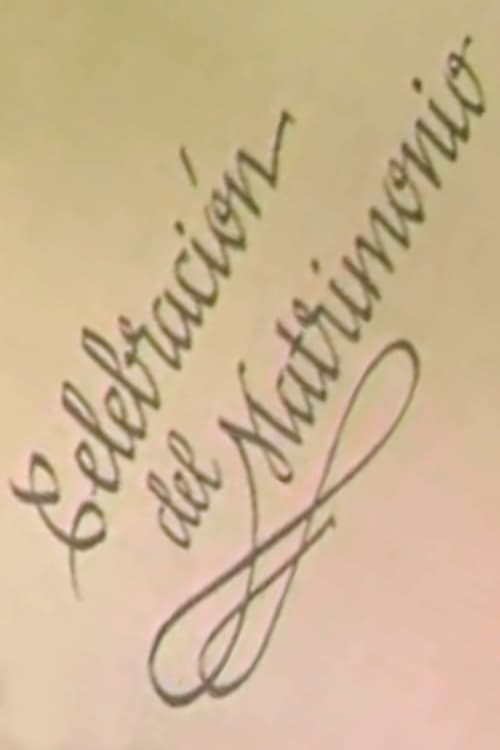 Celebración
del Matrimonio